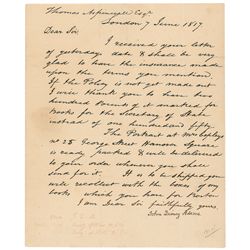 Thomas Aspinwall Esqr
London 7 June 1817
Dear Sir.
I received your letter
of yesterday's date & shall be very
glad to have the insurance made
upon the terms you mention.
If the Policy is not yet made out
I will thank you to have two
hundred Pounds of it marked for
Books for the Secretary of State
instead of one hundred & fifty.
The Portrait at Mr
No 28 George Street Hanover Square
is ready packed & will be delivered
to your order whenever you shall
send for it. It is to be shipped you
will recollect with the boxes of my
books which you have for Boston
I am Dear Sir faithfully yours
John Quincy Adams